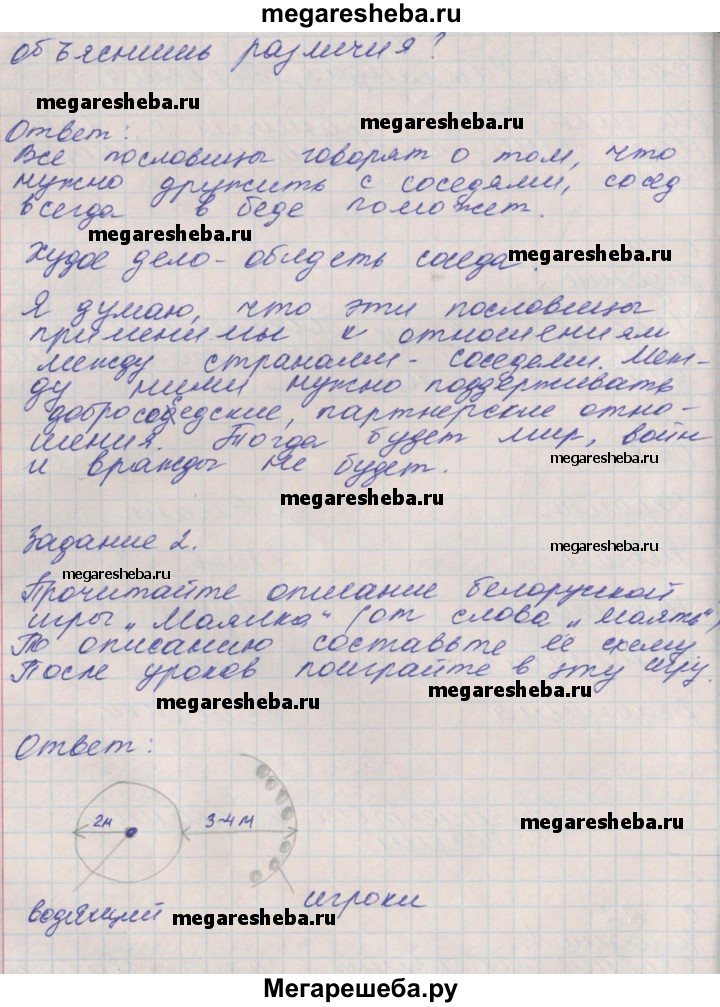 megaresheba.ru
объяснишь различия?
megaresheba.ru
megaresheba.ru
Ответ:
Все пословицы говорят о том, что
нужно дружить с соседями, сосед
всегда в беде поможет.
megaresheba.ru
Худое дело - обидеть соседа.
megaresheba.ru
Я думаю, что эти пословицы
применимы к отношениям
между странами - соседями. Меж-
ду ними нужно поддерживать
добрососедские, партнерские отно-
шения. Тогда будет мир, войн
и вражды не будет.
megaresheba.ru
megaresheba.ru
Задание 2.
megaresheba.ru
megaresheba.ru
Прочитайте описание белоруской
игры „Маялка“ (от слова „маять“)
По описанию составьте её схему.
После уроков поиграйте в эту игру.
megaresheba.ru
megaresheba.ru
Ответ:
2м
3-4 м
megaresheba.ru
водящий
игроки
megaresheba.ru
megaresheba.ru
Мегарешеба.ру